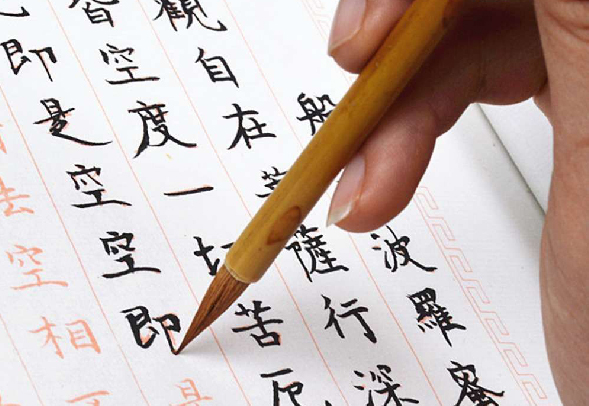 般波羅蜜
觀自在菩薩行深
皆空度一切苦厄
即是空空即是
法空相